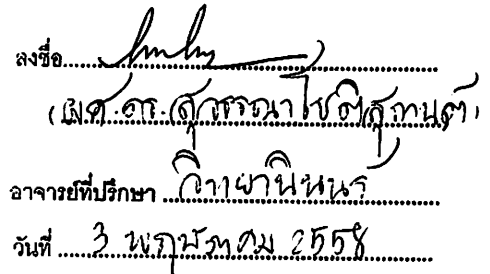 ลงชื่อ
(ผศ.ดร.สุวรรณา โชติสุกานต์)
อาจารย์ที่ปรึกษา วิทยานิพนธ์
วันที่ 3 พฤษภาคม 2558